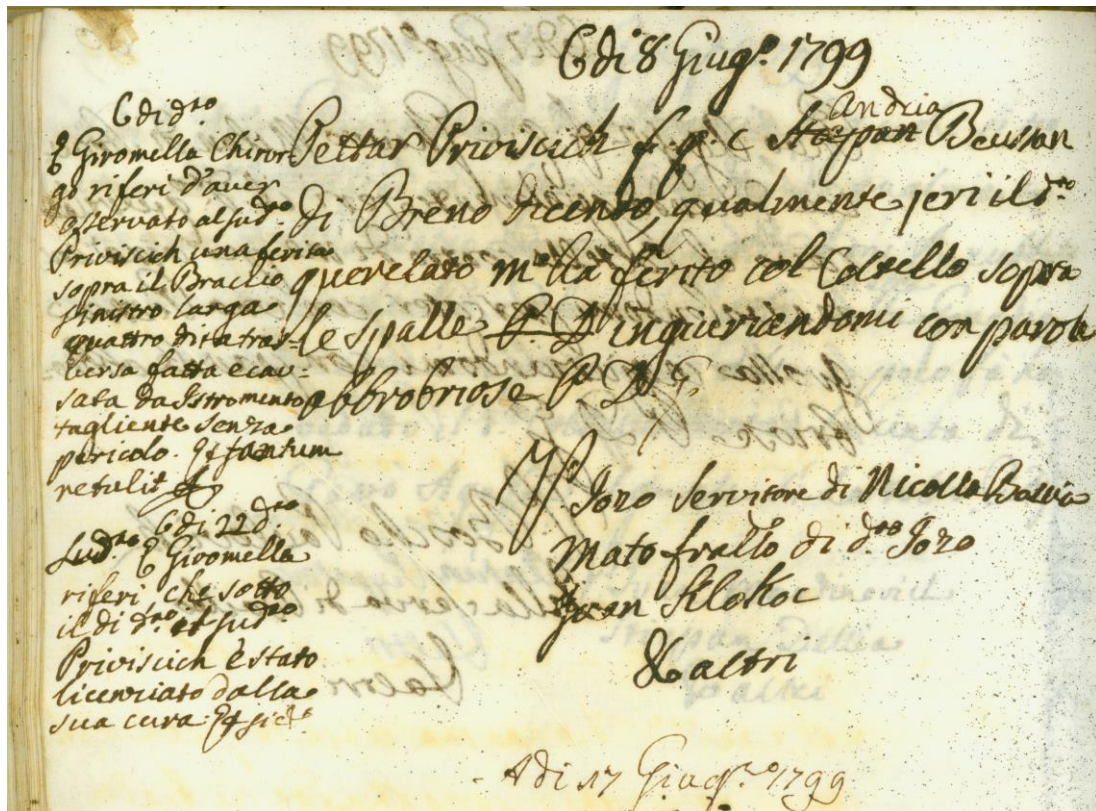 Adi 8 Giugº. 1799
Adi dto.
E Giromella Chirur
go riferi d'aver
osservato al sudto.
Priviscich una ferita
sopra il Braccio
sinistro larga
quattro dita tras-
versa fatta e cau-
sata da Istromento
tagliente senza
pericolo. Et tantum
retulit
Adi 22 dto.
Sudto E Giromella
riferi che sotto
il di dto il sudto
Priviscich è stato
licenziato dalla
sua cura. Et sic
Andria
Pettar Priviscich f. q. C Stiepan Beusan
di Breno dicendo, qualmente jeri il do.
querelato m'ha ferito col Coltello sopra
le spalle P. D inguriandomi con parole
obbrobriose P. D
Ts Jozo Servitore di Nicolla
Mato frallo di dto Jozo
Ivan Klokoc
& altri
Adi 17 Giugº 1799